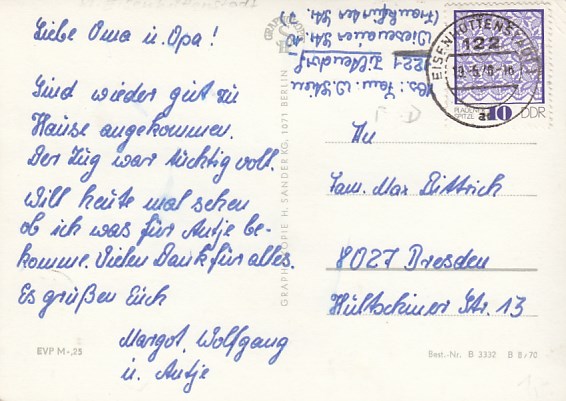 Liebe Oma u. Opa!
Sind wieder gut zu
Hause angekommen.
Der Zug war tüchtig voll.
Will heute mal sehen
ob ich was für Antje be-
komme. Vielen Dank für alles.
Es grüßen Euch
Margot, Wolfgang
u. Antje
EVP M -,25
GRAPHOKOPIE H. SANDER KG. 1071 BERLIN
Abs: Fam.
1221
(Frankfurter Str. 7)
EISENHÜTTENSTADT
122
PLAUENER
SPITZE
10
DDR
An
Fam. Max Dittrich
8027 Dresden
Hültschiner Str. 13
Best.-Nr. B 3332 B 8/70